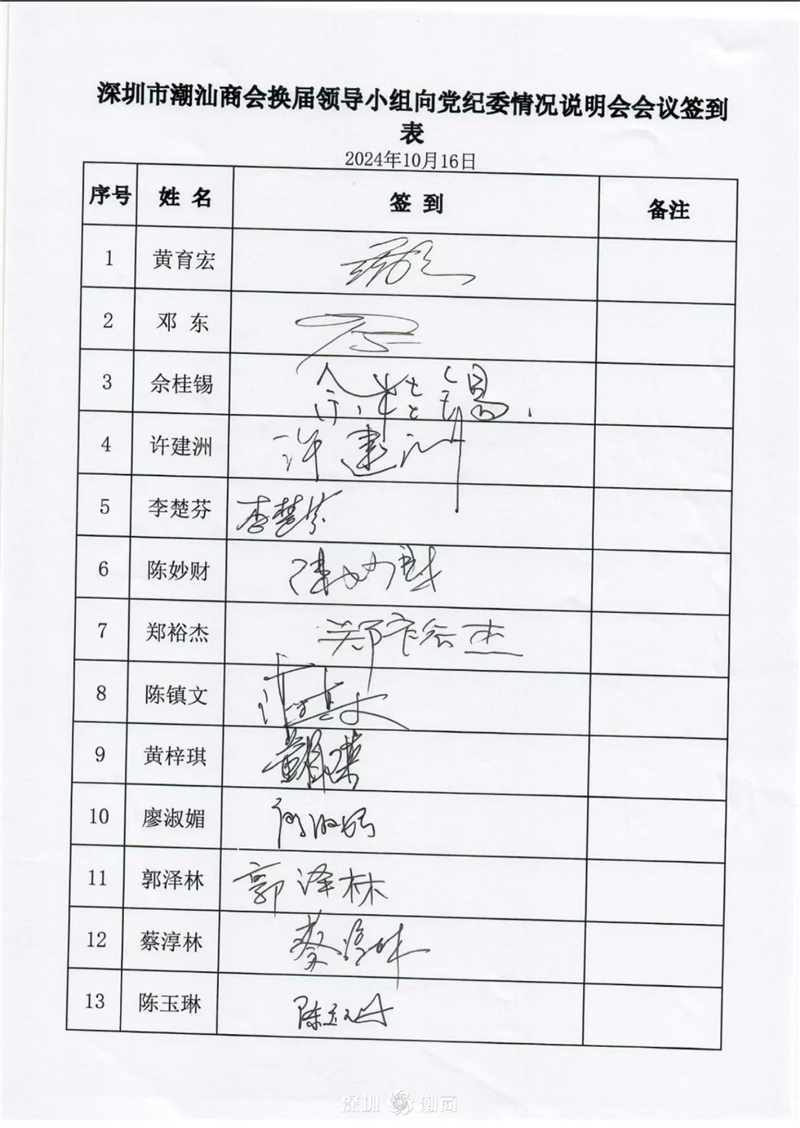 深圳市潮汕商会换届领导小组向党纪委情况说明会会议签到
表
2024年10月16日
序号 姓 名 签 到 备注
1 黄育宏
2 邓 东
3 佘桂锡 佘桂锡
4 许建洲 许建洲
5 李楚芬 李楚芬
6 陈妙财 陈妙财
7 郑裕杰 郑裕杰
8 陈镇文
9 黄梓琪
10 廖淑媚
11 郭泽林 郭泽林
12 蔡淳林 蔡淳林
13 陈玉琳 陈玉琳
深圳 潮商